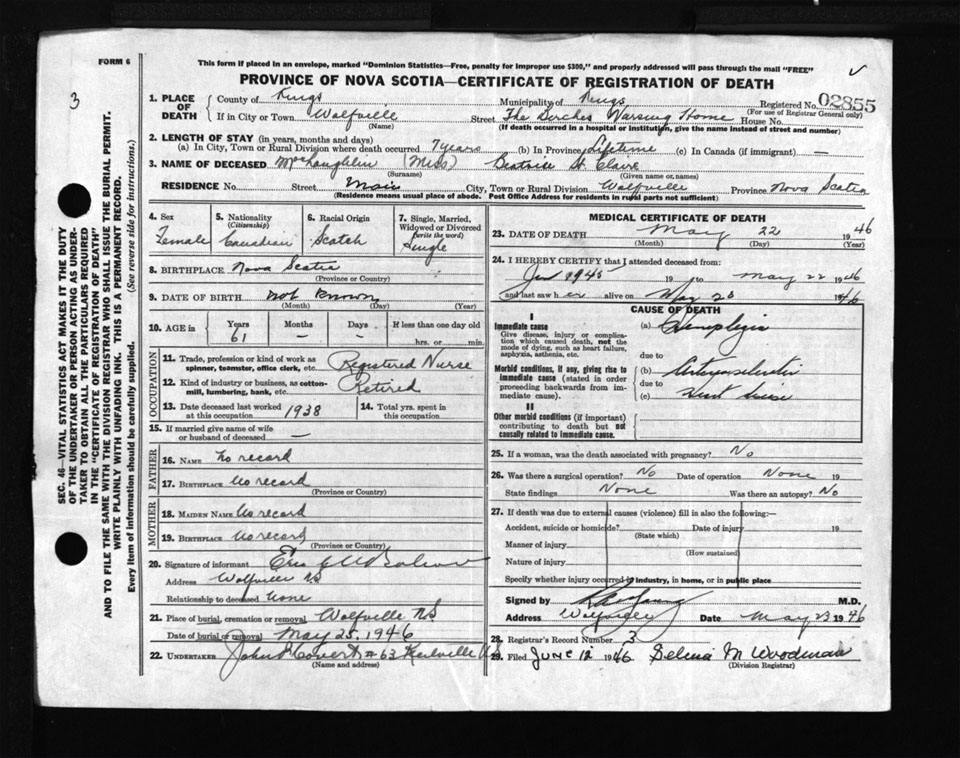 FORM 6
This form if placed in an envelope, marked "Dominion Statistics—Free, penalty for improper use $300," and properly addressed will pass through the mail "FREE"
PROVINCE OF NOVA SCOTIA—CERTIFICATE OF REGISTRATION OF DEATH
3
1. PLACE OF DEATH
County of Kings Municipality of Kings Registered No. 02855
(For use of Registrar General only)
If in City or Town Wolfville Street The Nursing Home House No.
(Name) (If death occurred in a hospital or institution, give the name instead of street and number)
2. LENGTH OF STAY (in years, months and days)
(a) In City, Town or Rural Division where death occurred 7 years (b) In Province Lifetime (c) In Canada (if immigrant) —
3. NAME OF DECEASED McLaughlin (Miss) Beatrice St. Claire
(Surname) (Given name or names)
RESIDENCE No. Street Main City, Town or Rural Division Wolfville Province Nova Scotia
(Residence means usual place of abode. Post Office Address for residents in rural parts not sufficient)
4. Sex
Female
5. Nationality
(Citizenship)
Canadian
6. Racial Origin
Scotch
7. Single, Married, Widowed or Divorced
(write the word)
Single
8. BIRTHPLACE Nova Scotia
(Province or Country)
9. DATE OF BIRTH not known
(Month) (Day) (Year)
10. AGE in
Years Months Days If less than one day old
61 — — hrs. or min.
OCCUPATION
11. Trade, profession or kind of work as spinner, teamster, office clerk, etc. Registered Nurse
12. Kind of industry or business, as cotton-mill, lumbering, bank, etc. Retired
13. Date deceased last worked at this occupation 1938
14. Total yrs. spent in this occupation
15. If married give name of wife or husband of deceased —
FATHER
16. NAME no record
17. BIRTHPLACE no record
(Province or Country)
MOTHER
18. MAIDEN NAME no record
19. BIRTHPLACE no record
(Province or Country)
20. Signature of informant
Address Wolfville NS
Relationship to deceased None
21. Place of burial, cremation or removal Wolfville NS
Date of burial or removal May 25, 1946
22. UNDERTAKER John Covert #63 NS
(Name and address)
MEDICAL CERTIFICATE OF DEATH
23. DATE OF DEATH May 22 1946
(Month) (Day) (Year)
24. I HEREBY CERTIFY that I attended deceased from:
Jan 1945 19 to May 22 1946
and last saw her alive on May 1946
CAUSE OF DEATH
I
Immediate cause
Give disease, injury or complication which caused death, not the mode of dying, such as heart failure, asphyxia, asthenia, etc.
(a) Hemiplegia
due to
Morbid conditions, if any, giving rise to immediate cause (stated in order proceeding backwards from immediate cause).
(b)
due to
(c)
II
Other morbid conditions (if important) contributing to death but not causally related to immediate cause.
25. If a woman, was the death associated with pregnancy? No
26. Was there a surgical operation? No Date of operation None 19
State findings None Was there an autopsy? No
27. If death was due to external causes (violence) fill in also the following:—
Accident, suicide or homicide? Date of injury 19
(State which)
Manner of injury
(How sustained)
Nature of injury
Specify whether injury occurred in industry, in home, or in public place
Signed by M.D.
Address Wolfville Date May 23 1946
28. Registrar's Record Number 3
29. Filed JUNE 12 1946 Selena M Woodman
(Division Registrar)
SEC. 46—VITAL STATISTICS ACT MAKES IT THE DUTY
OF THE UNDERTAKER OR PERSON ACTING AS UNDER-
TAKER TO OBTAIN ALL THE PARTICULARS REQUIRED
IN THE "CERTIFICATE OF REGISTRATION OF DEATH"
AND TO FILE THE SAME WITH THE DIVISION REGISTRAR WHO SHALL ISSUE THE BURIAL PERMIT.
WRITE PLAINLY WITH UNFADING INK. THIS IS A PERMANENT RECORD.
Every item of information should be carefully supplied. (See reverse side for instructions.)